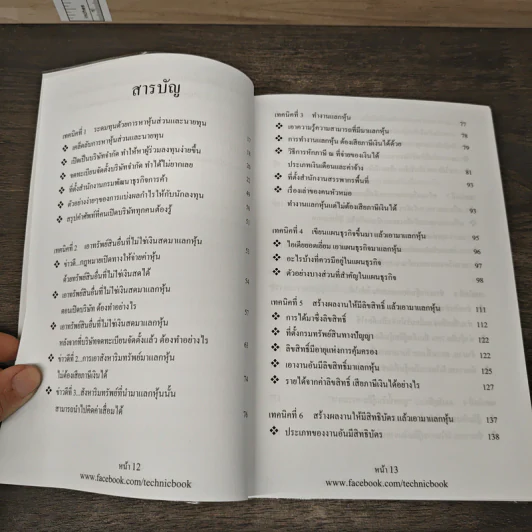 สารบัญ
เทคนิคที่ 1 ระดมทุนด้วยการหาหุ้นส่วนและนายทุน
❖ เคล็ดลับการหาหุ้นส่วนและนายทุน
❖ เปิดเป็นบริษัทจำกัด ทำให้หาผู้ร่วมลงทุนง่ายขึ้น
❖ จดทะเบียนจัดตั้งบริษัทจำกัด ทำได้ไม่ยากเลย
❖ ที่ตั้งสำนักงานกรมพัฒนาธุรกิจการค้า
❖ ตัวอย่างง่ายๆของการแบ่งผลกำไรให้กับนักลงทุน
❖ สรุปคำศัพท์ที่คนเปิดบริษัททุกคนต้องรู้
เทคนิคที่ 2 เอาทรัพย์สินอื่นที่ไม่ใช่เงินสดมาแลกหุ้น
❖ ข่าวดี..กฎหมายเปิดทางให้จ่ายค่าหุ้น
ด้วยทรัพย์สินอื่นที่ไม่ใช่เงินสดได้
❖ เอาทรัพย์สินอื่นที่ไม่ใช่เงินสดมาแลกหุ้น
ตอนเปิดบริษัท ต้องทำอย่างไร
❖ เอาทรัพย์สินอื่นที่ไม่ใช่เงินสดมาแลกหุ้น
หลังจากที่บริษัทจดทะเบียนจัดตั้งแล้ว ต้องทำอย่างไร
❖ ข่าวดีที่ 2..การเอาอสังหาริมทรัพย์มาแลกหุ้น
ไม่ต้องเสียภาษีเงินได้
❖ ข่าวดีที่ 3..สังหาริมทรัพย์ที่นำมาแลกหุ้นนั้น
สามารถนำไปคิดค่าเสื่อมได้ 76
หน้า 12
www.facebook.com/technicbook
เทคนิคที่ 3 ทำงานแลกหุ้น 77
❖ เอาความรู้ความสามารถที่มีมาแลกหุ้น 78
❖ การทำงานแลกหุ้น ต้องเสียภาษีเงินได้ด้วย 79
❖ วิธีการหักภาษี ณ ที่จ่ายของเงินได้
ประเภทเงินเดือนและค่าจ้าง 81
❖ ที่ตั้งสำนักงานสรรพากรพื้นที่ 93
❖ เรื่องเล่าของคนหัวหมอ
ทำงานแลกหุ้นแต่ไม่ต้องเสียภาษีเงินได้ 93
เทคนิคที่ 4 เขียนแผนธุรกิจขึ้นมา แล้วเอามาแลกหุ้น 95
❖ ไอเดียยอดเยี่ยม เอาแผนธุรกิจมาแลกหุ้น 96
❖ อะไรบ้างที่ควรมีอยู่ในแผนธุรกิจ 97
❖ ตัวอย่างบางส่วนที่สำคัญในแผนธุรกิจ 98
เทคนิคที่ 5 สร้างผลงานให้มีลิขสิทธิ์ แล้วเอามาแลกหุ้น 111
❖ การได้มาซึ่งลิขสิทธิ์ 112
❖ ที่ตั้งกรมทรัพย์สินทางปัญญา 122
❖ ลิขสิทธิ์มีอายุแห่งการคุ้มครอง 122
❖ เอางานอันมีลิขสิทธิ์มาแลกหุ้น 125
❖ รายได้จากค่าลิขสิทธิ์ เสียภาษีเงินได้อย่างไร 127
เทคนิคที่ 6 สร้างผลงานให้มีสิทธิบัตร แล้วเอามาแลกหุ้น 137
❖ ประเภทของงานอันมีสิทธิบัตร 138
หน้า 13
www.facebook.com/technicbook